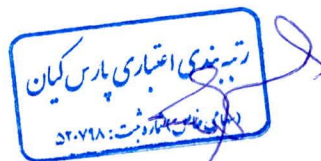 رتبه‌بندی اعتباری پارس کیان
شماره ثبت: ۵۲۰۷۹۸